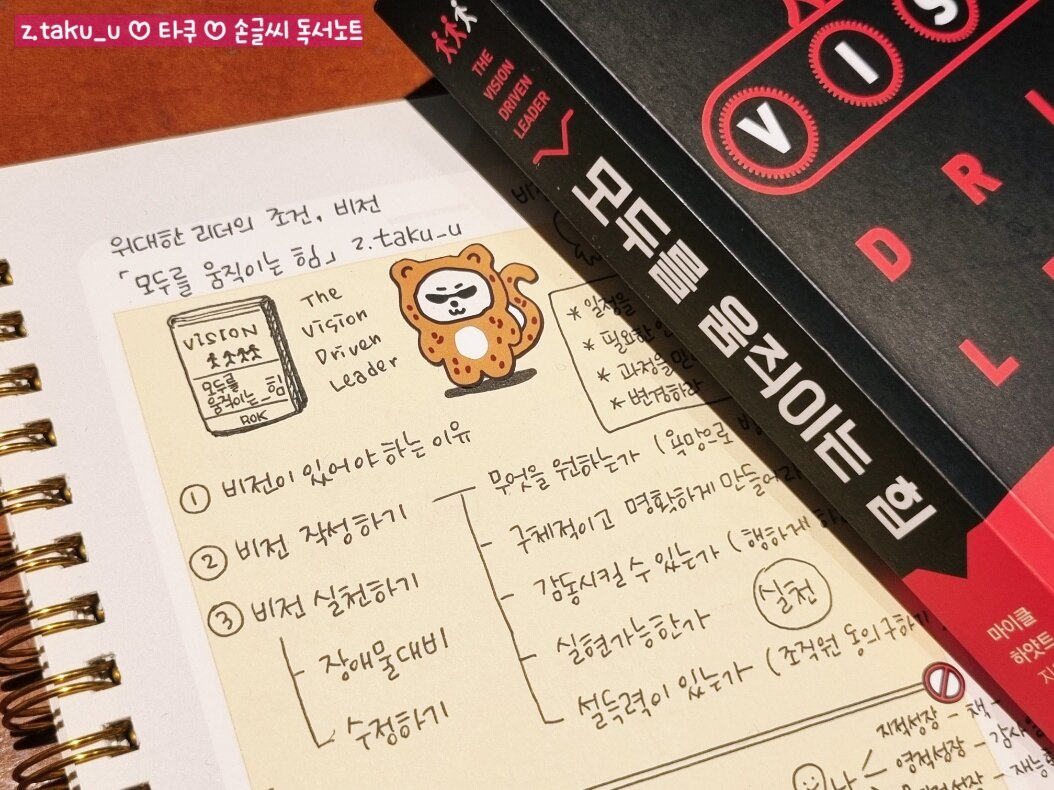 z.taku_u ♡ 타쿠 ♡ 손글씨 독서노트
위대한 리더의 조건, 비전
「모두를 움직이는 힘」 z.taku_u
VISION
모두를
움직이는_힘
ROK
The
Vision
Driven
Leader
* 일정을
* 필요한
* 과정을
* 변경하라
① 비전이 있어야 하는 이유
② 비전 작성하기
무엇을 원하는가 (욕망으로
구체적이고 명확하게 만들어라
감동시킬 수 있는가 (행하게
실현가능한가
설득력이 있는가 (조직원 동의 구하기
실천
③ 비전 실천하기
장애물대비
수정하기
나
지적성장 - 책 -
영적성장 - 감사
THE
VISION
DRIVEN
LEADER
모두를 움직이는 힘
마이클
하얏트
VIS
DRI
L